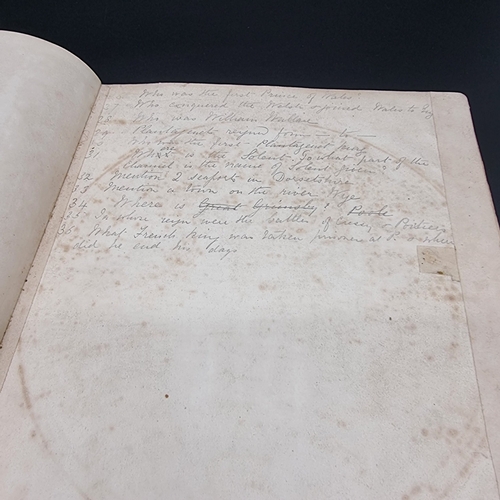 Who was the first Prince of Wales
Who conquered the Welsh & joined Wales to Eng
Who was William Wallace
Plantagenets reigned from — to —
Who was the first Plantagenet king
31 What is the Solent. To what part of the
channel is the name of Solent given
32 Mention 2 seaports in Dorsetshire
33 Mention a town on the river Wye
34 Where is Great Grimsby? Poole
35 In whose reign were the battles of Cressy & Poitiers
36 What French king was taken prisoner at P where
did he end his days